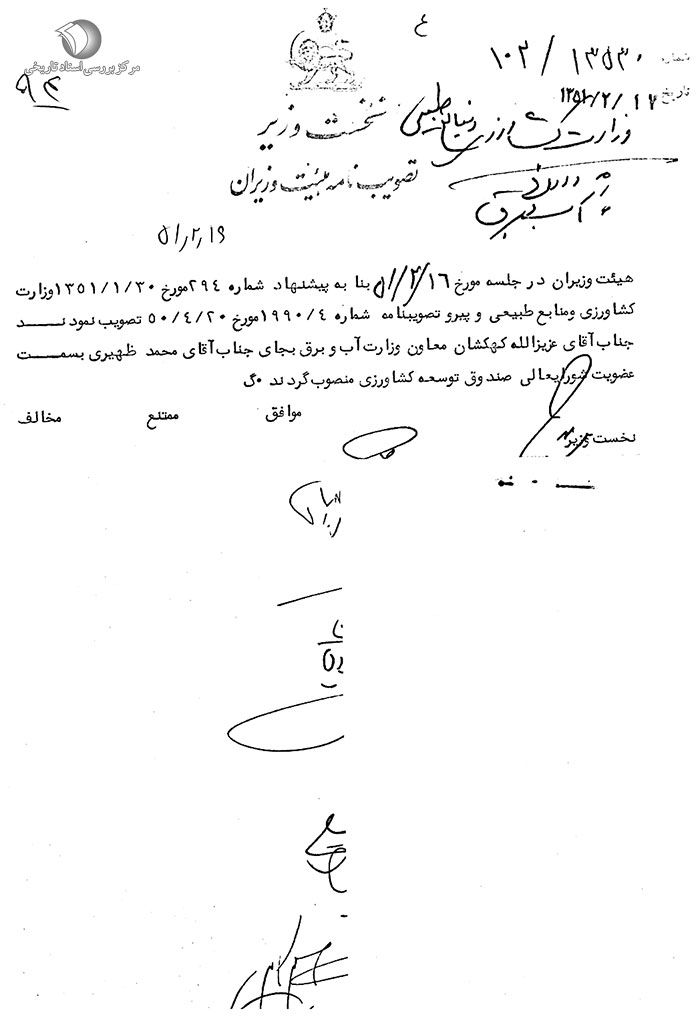 مرکز بررسی اسناد تاریخی
۴
شماره ۱۰۲/۱۳۵۳۰
تاریخ ۱۳۵۱/۲/۱۷
۹۴
نخست وزیر
وزارت کشاورزی و منابع طبیعی
تصویب نامه هیئت وزیران
وزارت آب و برق
۵۱٫۲٫۱۹
هیئت وزیران در جلسه مورخ ۵۱/۲/۱۶ بنا به پیشنهاد شماره ۲۹٤مورخ ۱۳۵۱/۱/۳۰وزارت
کشاورزی ومنابع طبیعی و پیرو تصویبنامه شماره ۱۹۹۰/٤مورخ ۵۰/٤/۲۰ تصویب نمودند
جناب آقای عزیزالله کهکشان معاون وزارت آب و برق بجای جناب آقای محمد ظهیری بسمت
عضویت شورایعالی صندوق توسعه کشاورزی منصوب گردند ۰گ
موافق ممتنع مخالف
نخست وزیر